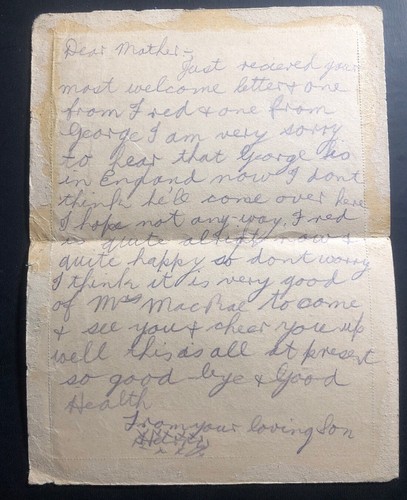 Dear Mother-
Just recieved your
most welcome letter & one
from Fred & one from
George I am very sorry
to hear that George is
in England now I dont
think he'll come over here
I hope not any way, Fred
is quite alright now &
quite happy so dont worry
I think it is very good
of Mrs MacRae to come
& see you & cheer you up
well this is all at present
so good bye & Good
Health
From your loving Son
x x x